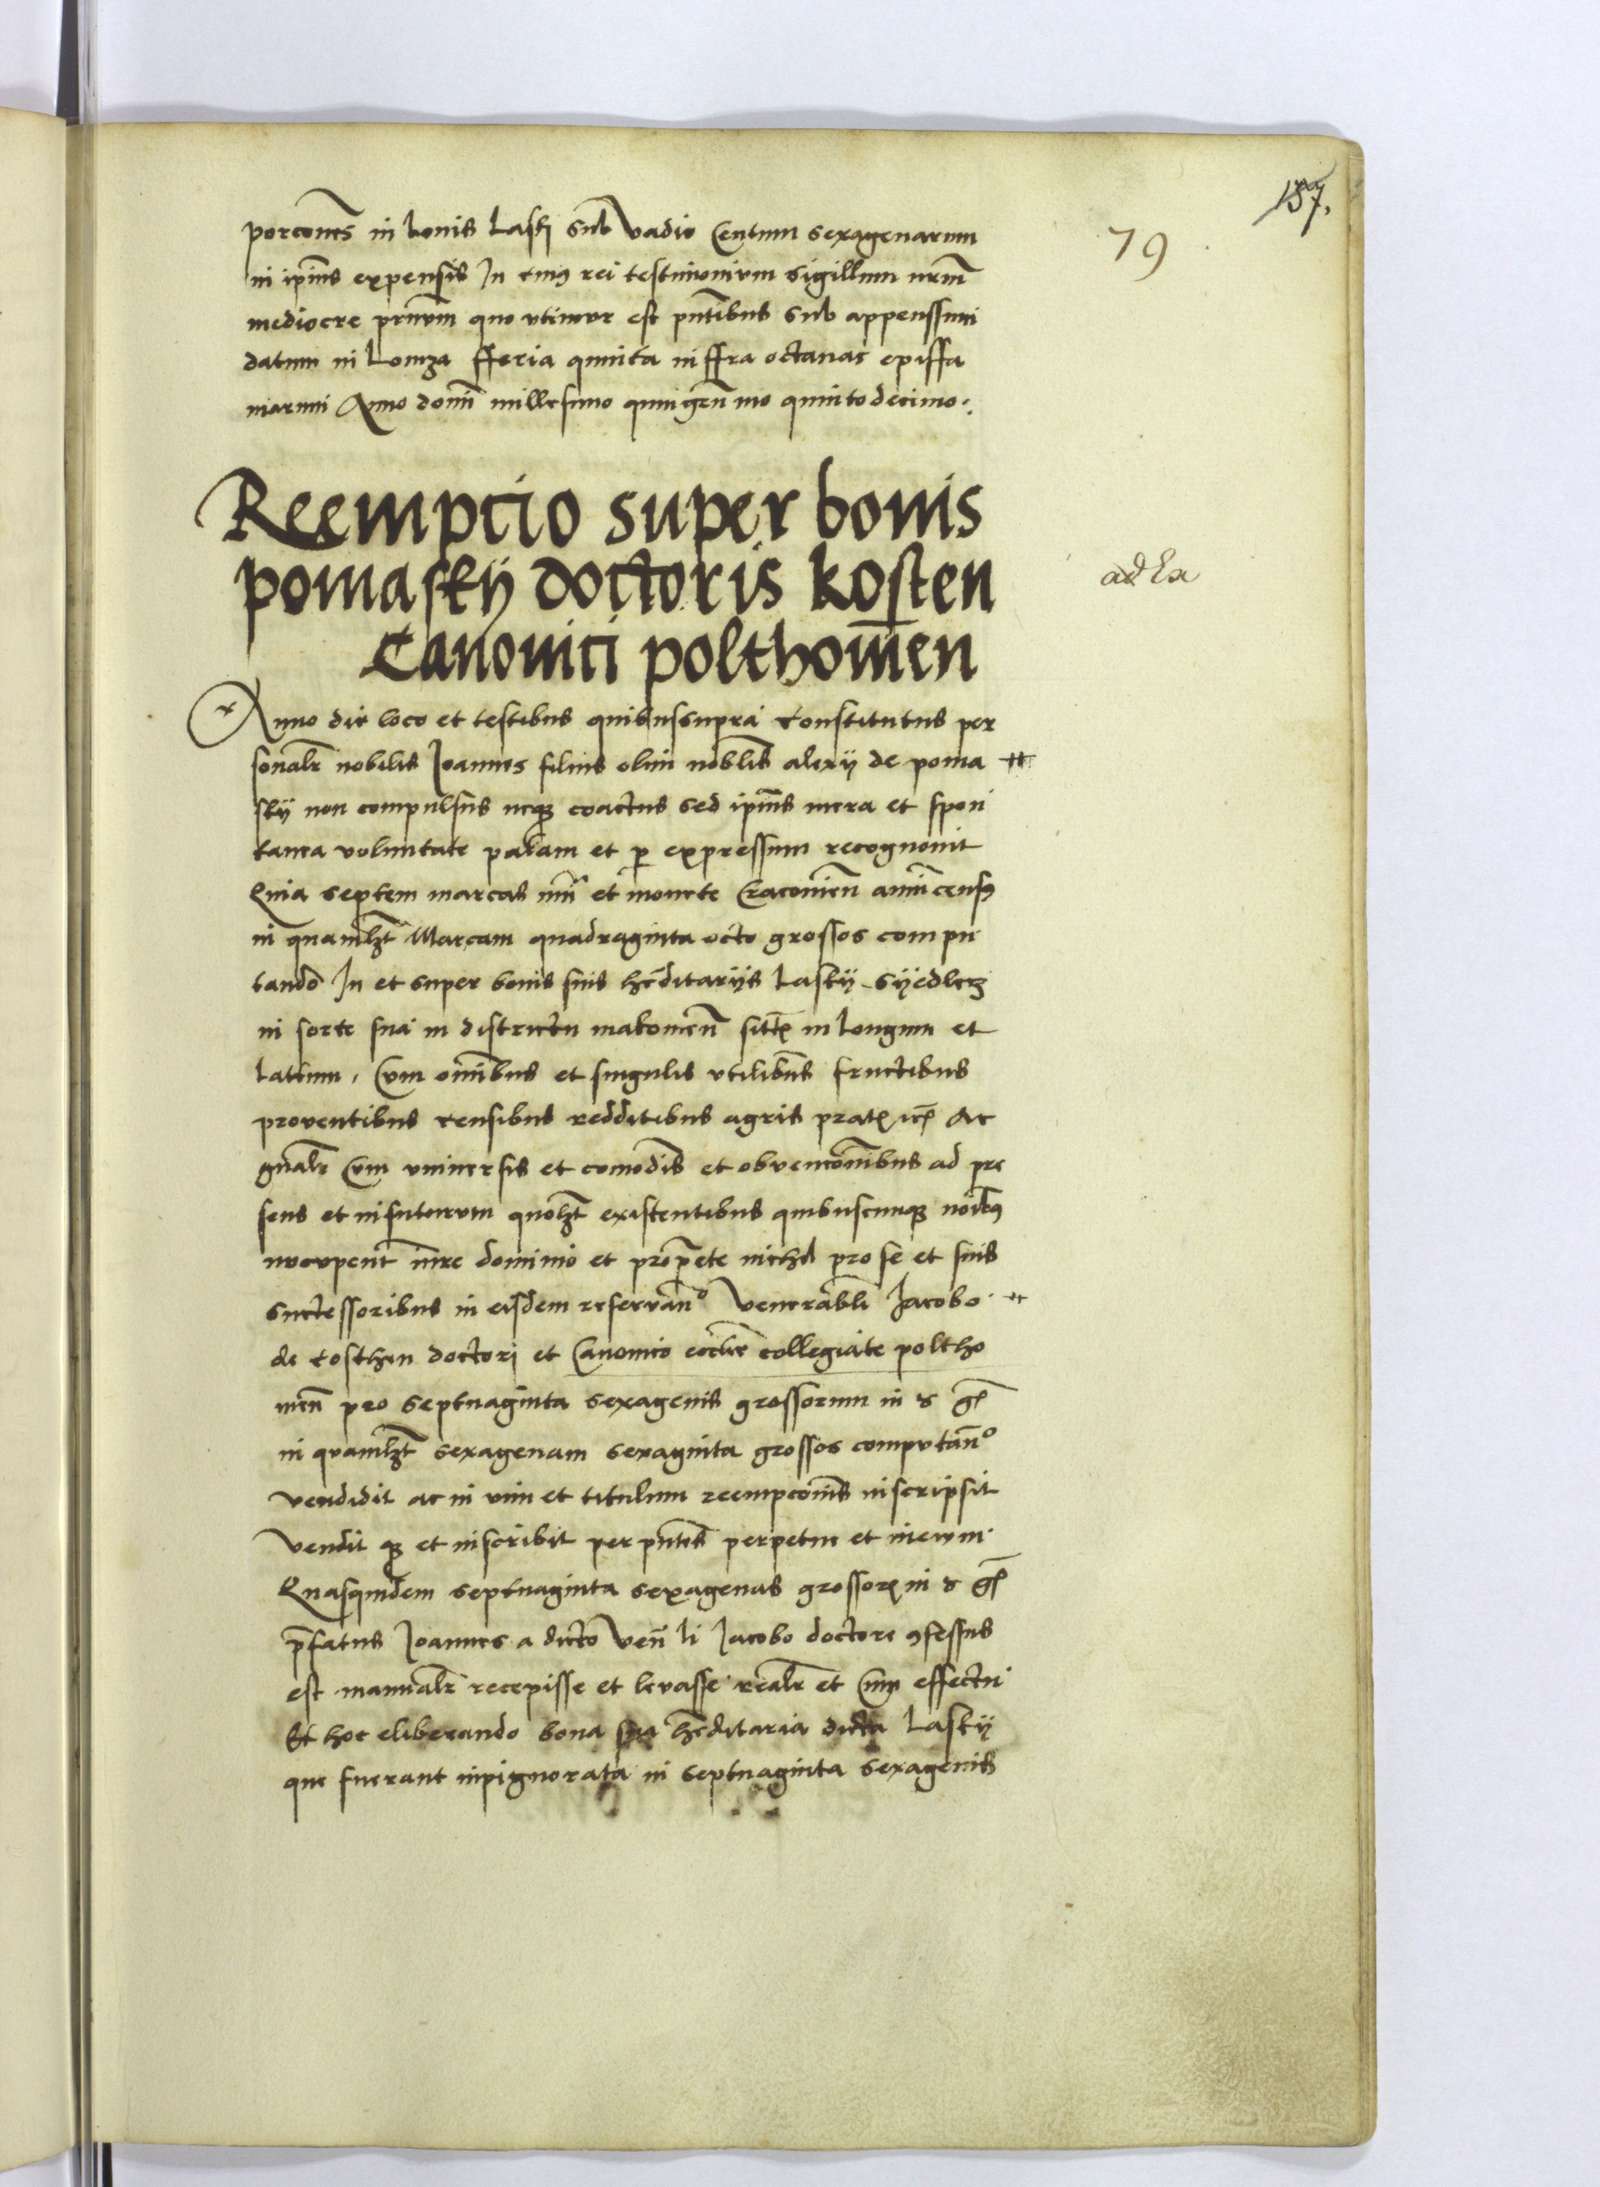 157.
79
porcones in bonis Lasky sub vadio Centum sexagenarum
in ipius expensis In cuius rei testimonium sigillum nrm
mediocre prnum quo utimur est pntibus sub appenssum
datum in Lomza fferia quinta in ffra octavas epiffa
niarum Anno domi millesimo quingen mo quinto decimo.
Reempcio super bonis
pomasky doctoris kosten
ad La
Canonici polthouien
Anno die loco et testibus quibussupra Constitutus per
sonalr nobilis Joannes filius olim noblis alexy de poma
sky non compulsus neque coactus sed ipius mera et spon
tanea voluntate palam et per expressum recognovit
Quia septem marcas et monete Cracovien anui census
in quamlzt Marcam quadraginta octo grossos compu
tando In et super bonis suis heditariis Lasky Syedlecz
in sorte sua in districtu makovien sitis in longum et
latum, Cum omnibus et singulis utilibus fructibus
proventibus censibus redditibus agris pratis Ac
gnalr Cum universis et comodis et obvencionibus ad pre
sens et infuturum quolzt existentibus quibuscunque noibus
nucupent iure dominio et propete nichil pro se et suis
successoribus in eisdem reservando Venerabli Jacobo
de costhen doctori et Canonico ecclie collegiate poltho
vien pro septuaginta sexagenis grossorum in
in quamlzt sexagenam sexaginta grossos computando
vendidit ac in vim et titulum reempconis inscripsit
Vendit que et inscribit per pntes perpetue et in evum
Quasquidem septuaginta sexagenas grossorum in
pfatus Joannes a dicto Ven li Jacobo doctore confessus
est manualr recepisse et levasse realr et cum effectu
Et hoc eliberando bona sua heditaria dicta Lasky
que fuerant inpignorata in septuaginta sexagenis